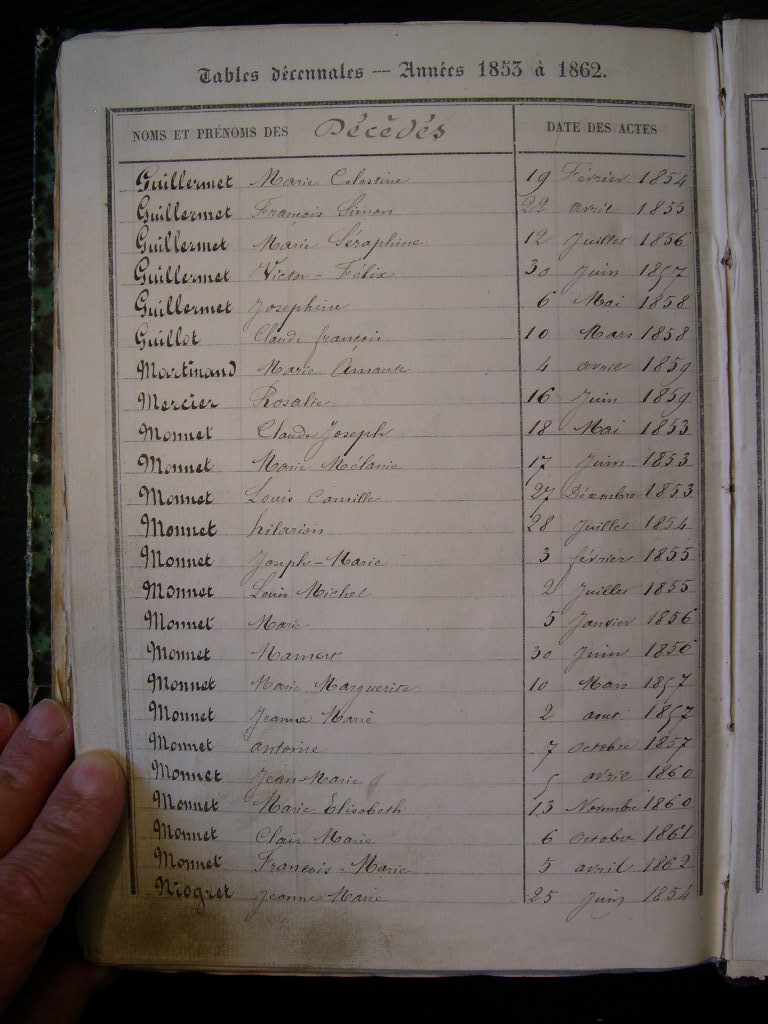 Tables décennales — Années 1853 à 1862.
NOMS ET PRÉNOMS DES Décédés DATE DES ACTES
Guillermet Marie Celestine 19 Février 1854
Guillermet François Simon 22 avril 1855
Guillermet Marie Séraphine 12 Juillet 1856
Guillermet Victor - Félix 30 Juin 1857
Guillermet Josephine 6 Mai 1858
Guillot Claude françois 10 Mars 1858
Martinand Marie Amante 4 avril 1859
Mercier Rosalie 16 Juin 1859
Monnet Claude Joseph 18 Mai 1853
Monnet Marie Mélanie 17 Juin 1853
Monnet Louis Camille 27 Décembre 1853
Monnet hilarion 28 Juillet 1854
Monnet Joseph-Marie 3 février 1855
Monnet Louis Michel 2 Juillet 1855
Monnet Marie 5 Janvier 1856
Monnet Mamert 30 Juin 1856
Monnet Marie Marguerite 10 Mars 1857
Monnet Jeanne Marie 2 aout 1857
Monnet antoine 7 octobre 1857
Monnet Jean-Marie 5 avril 1860
Monnet Marie Elisabeth 13 Novembre 1860
Monnet Clair Marie 6 octobre 1861
Monnet François-Marie 5 avril 1862
Niogret Jeanne Marie 25 Juin 1854